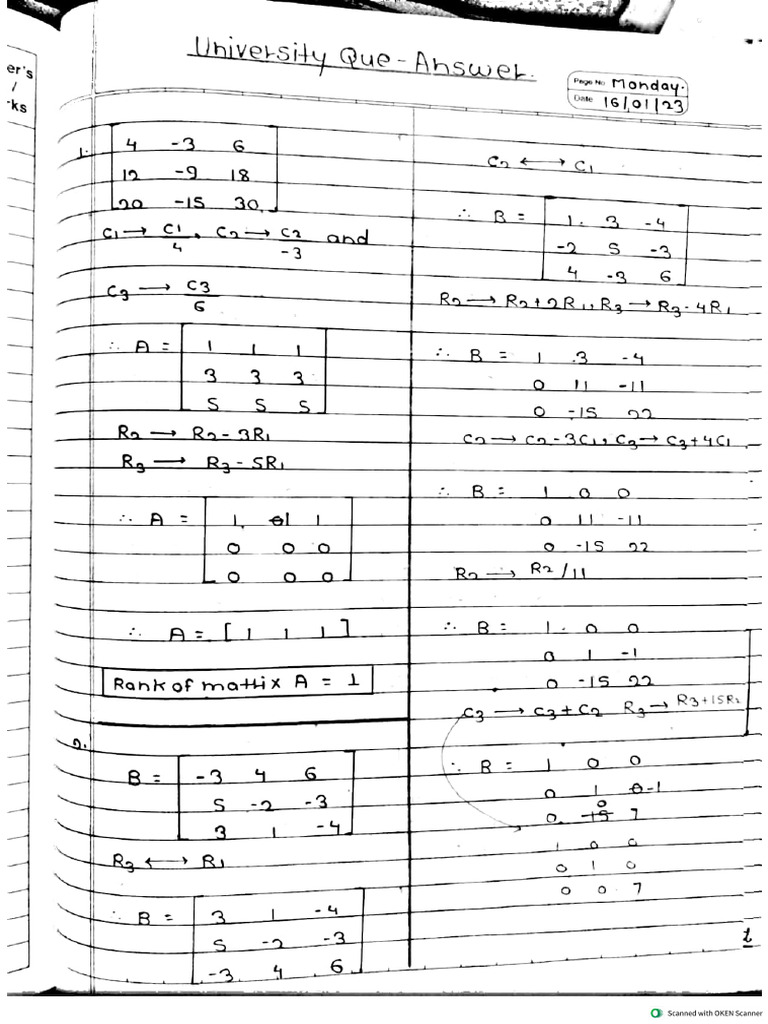 er's
/
ks
University Que-Answer.
Page No Monday.
Date 16/01/23
1. 4 -3 6
12 -9 18
20 -15 30
C1 → C1/4, C2 → C2/-3 and
C3 → C3/6
∴ A = 1 1 1
3 3 3
5 5 5
R2 → R2-3R1
R3 → R3-5R1
∴ A = 1 1 1
0 0 0
0 0 0
∴ A = [ 1 1 1 ]
Rank of mattix A = 1
2.
B = -3 4 6
5 -2 -3
3 1 -4
R3 ↔ R1
∴ B = 3 1 -4
5 -2 -3
-3 4 6
C2 ↔ C1
∴ B = 1 3 -4
-2 5 -3
4 -3 6
R2 → R2+2R1, R3 → R3-4R1
∴ B = 1 3 -4
0 11 -11
0 -15 22
C2 → C2-3C1, C3 → C3+4C1
∴ B = 1 0 0
0 11 -11
0 -15 22
R2 → R2/11
∴ B = 1 0 0
0 1 -1
0 -15 22
C3 → C3+C2 R3 → R3+15R2
∴ B = 1 0 0
0 1 -1
0 0 7
1 0 0
0 1 0
0 0 7
Scanned with OKEN Scanner